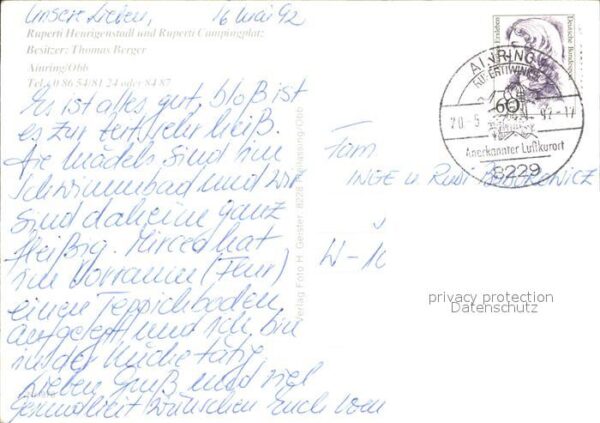 Unsere Lieben, 16 Mai 92
Ruperti Heurigenstadl und Ruperti Campingplatz
Besitzer: Thomas Berger
Ainring/Obb
Tel 0 86 54/81 24 oder 84 87
Es ist alles gut, bloß ist
es zur Zeit sehr heiß.
Die Mädels sind im
Schwimmbad und wir
sind daheim ganz
fleißig. Mircea hat
im Vorraum (Flur)
einen Teppichboden
ausgelegt und ich bin
in der Küche tätig.
Lieben Gruß und viel
Gesundheit wünschen Euch von
Verlag Foto H. Geister, 8228 Freilassing/Obb
Deutsche Bundespost
AINRING
RUPERTIWINKEL
60
20-5 92-17
Anerkannter Luftkurort
8229
Fam
INGE u. Rudi
W-
privacy protection
Datenschutz